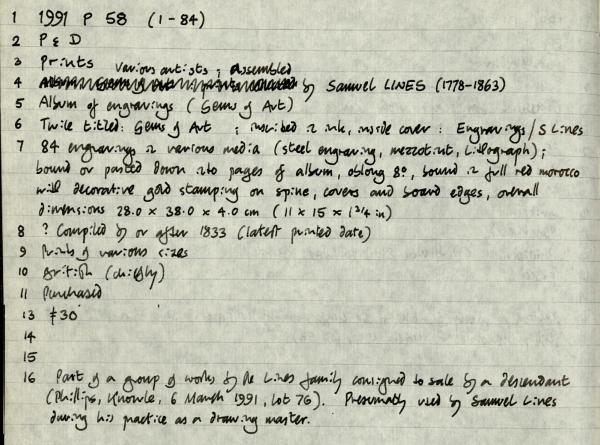 1 1991 P 58 (1-84)
2 P & D
3 Prints various artists ; assembled
4 by Samuel LINES (1778-1863)
5 Album of engravings (Gems of Art)
6 Title titled: Gems of Art ; inscribed in ink, inside cover : Engravings / S Lines
7 84 engravings in various media (steel engraving, mezzotint, lithograph) ;
bound or pasted down into pages of album, oblong 8º, bound in full red morocco
with decorative gold stamping on spine, covers and board edges, overall
dimensions 28.0 x 38.0 x 4.0 cm (11 x 15 x 1 3/4 in)
8 ? Compiled by or after 1833 (latest printed date)
9 Prints of various sizes
10 British (chiefly)
11 Purchased
13 £30
14
15
16 Part of a group of works by the Lines family consigned to sale by a descendant
(Phillips, Knowle, 6 March 1991, lot 76). Presumably used by Samuel Lines
during his practice as a drawing master.